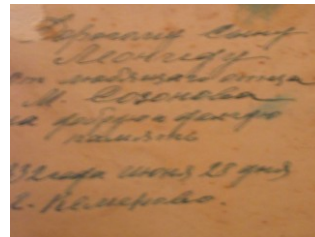 Дорогому Сыну
Леониду
от любящего отца
М. Созонова
на добрую долгую
память
932 года июня 25 дня
г. Кемерово.